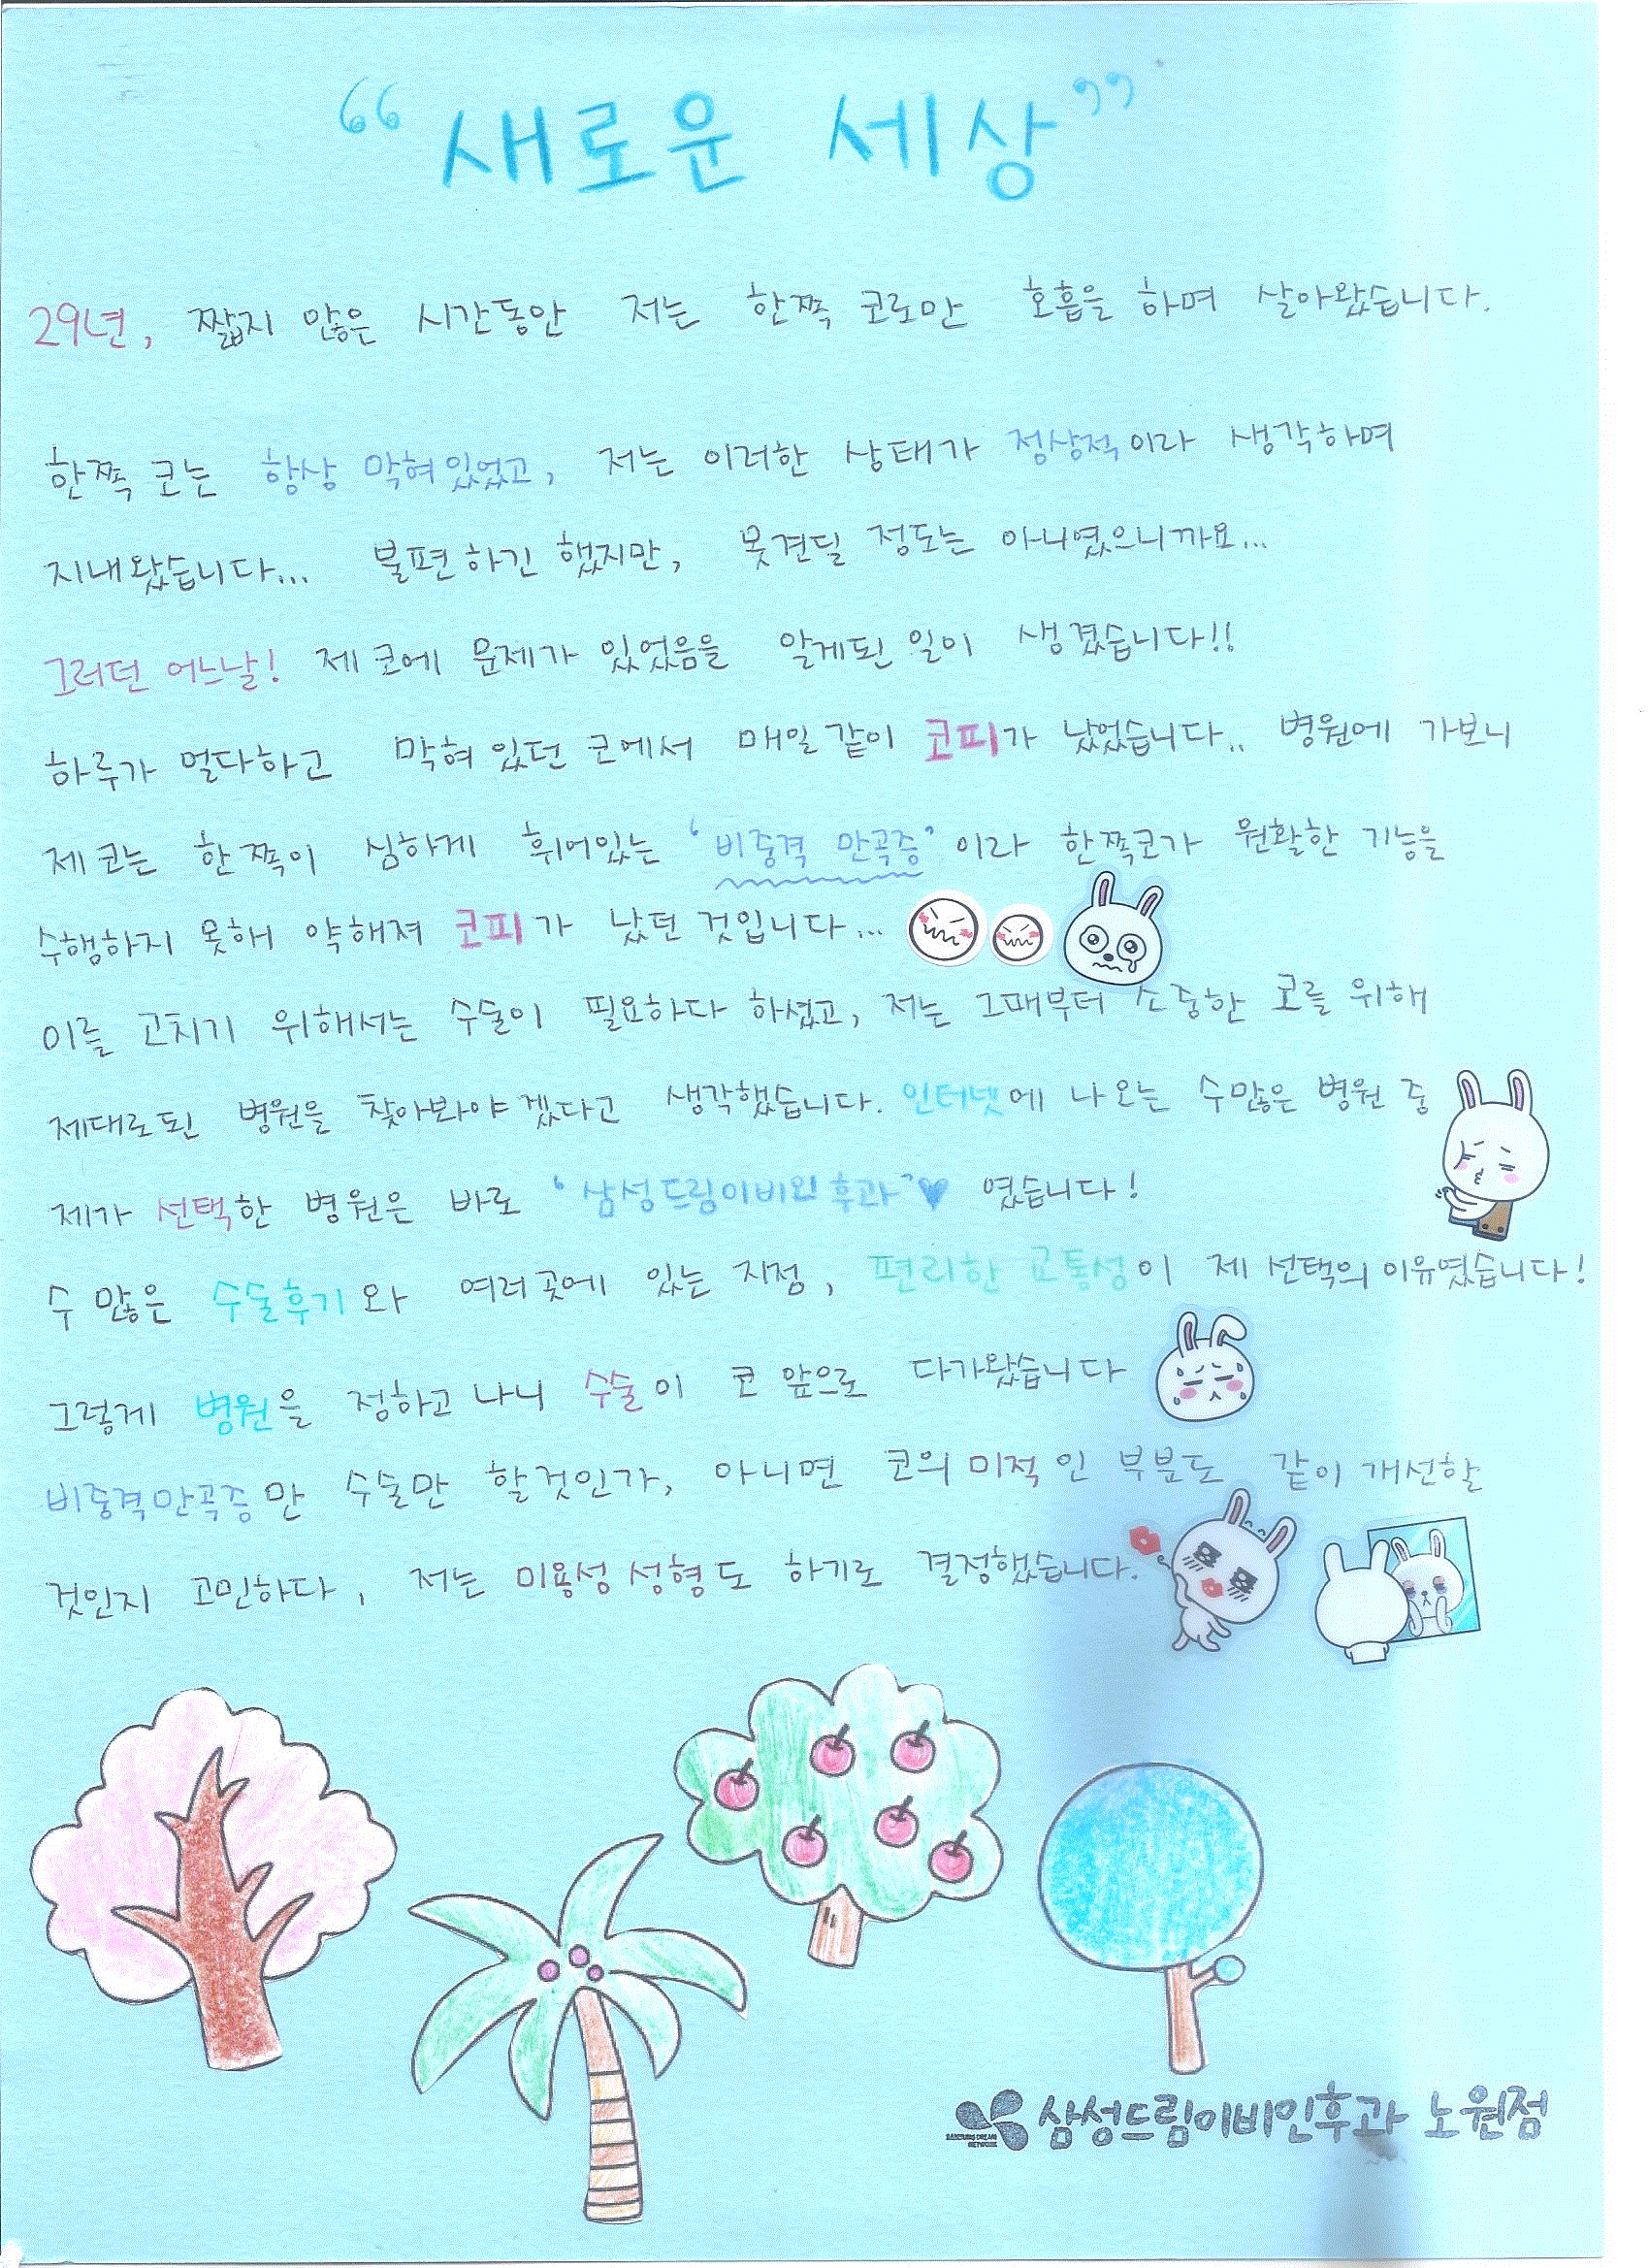 "새로운 세상"
29년, 짧지 않은 시간동안 저는 한쪽 코로만 호흡을 하며 살아왔습니다.
한쪽 코는 항상 막혀있었고, 저는 이러한 상태가 정상적이라 생각하며
지내왔습니다... 불편하긴 했지만, 못견딜 정도는 아니였으니까요...
그러던 어느날! 제 코에 문제가 있었음을 알게된 일이 생겼습니다!!
하루가 멀다하고 막혀있던 코에서 매일같이 코피가 났었습니다.. 병원에 가보니
제 코는 한쪽이 심하게 휘어있는 '비중격 만곡증'이라 한쪽코가 원활한 기능을
수행하지 못해 약해져 코피가 났던 것입니다...
이를 고치기 위해서는 수술이 필요하다 하셨고, 저는 그때부터 소중한 코를 위해
제대로된 병원을 찾아봐야겠다고 생각했습니다. 인터넷에 나오는 수많은 병원 중
제가 선택한 병원은 바로 '삼성드림이비인후과'♥ 였습니다!
수 많은 수술후기와 여러곳에 있는 지점, 편리한 교통성이 제 선택의 이유였습니다!
그렇게 병원을 정하고 나니 수술이 코 앞으로 다가왔습니다
비중격만곡증만 수술만 할것인가, 아니면 코의 미적인 부분도 같이 개선할
것인지 고민하다, 저는 미용성 성형도 하기로 결정했습니다.
SAMSUNG DREAM
NETWORK
삼성드림이비인후과 노원점